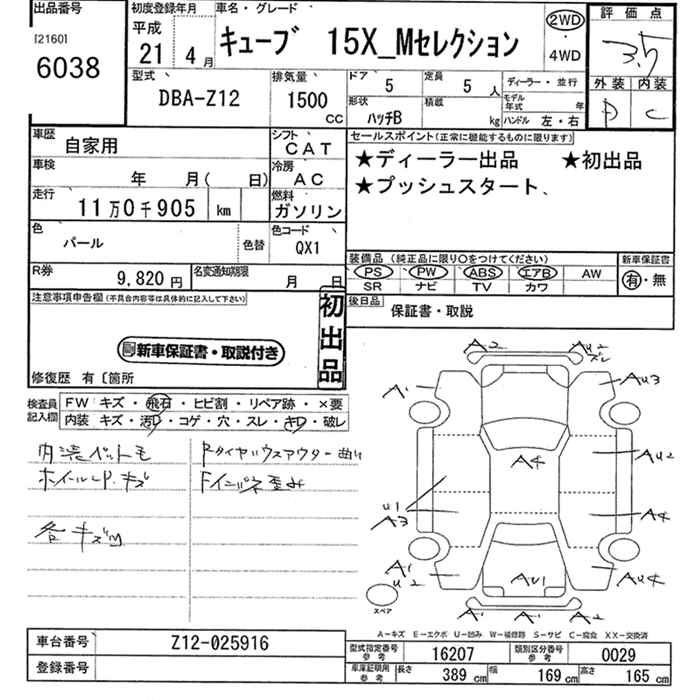 出品番号
[2160]
6038
初度登録年月
平成
21 4 月
車名・グレード
キューブ 15X_Mセレクション
2WD
・
4WD
評価点
3.5
外装 内装
D C
型式
DBA-Z12
排気量
1500
CC
ドア
5
定員
5 人
ディーラー・並行
形状
ハッチB
積載
kg
モデル年式 年
ハンドル 左・右
車歴
自家用
シフト
CAT
車検
年 月( 日)
冷房
AC
走行
11万0千905 km
燃料
ガソリン
色
パール
色替
色コード
QX1
R券
9,820 円
名変通知期限
月 日
セールスポイント(正常に機能するものに限ります)
★ディーラー出品 ★初出品
★プッシュスタート、
装備品 (純正品に限り○をつけてください)
PS PW ABS エアB AW
SR ナビ TV カワ
新車保証書
有・無
後日品
保証書・取説
注意事項申告欄(不具合内容等は具体的に記入して下さい)
新車保証書・取説付き
初出品
修復歴 有〔箇所
検査員記入欄
FW キズ・飛石・ヒビ割・リペア跡・×要
内装 キズ・汚れ・コゲ・穴・スレ・キレ・破レ
内装ペット毛
ホイールCP.キズ
各キズ凹
Rタイヤハウスアウター曲り
Fインパネ歪み
A2
AU2
ズレ
A1
AU3
A4
AU2
U1
A3
A4
A1
U2
AU1
AU4
A1
A2
スペア
A-キズ E-エクボ U-凹み W-補修跡 S-サビ C-腐食 XX-交換済
車台番号
Z12-025916
登録番号
型式指定番号
参考
16207
類別区分番号
参考
0029
車庫証明用
参考
長さ 389 cm 幅 169 cm 高さ 165 cm